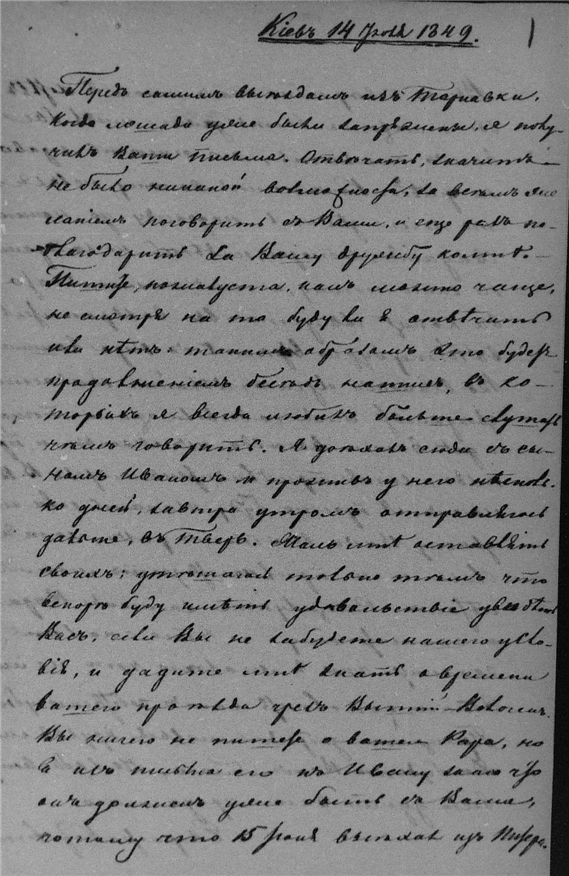 Кіевъ 14 Іюля 1849.
Передъ самымъ выѣздомъ изъ Тернавки,
когда лошади уже были запряжены, я полу-
чилъ Ваши письма. Отвѣчать, значитъ
не было никакой возможности, за всѣмъ же-
ланіемъ поговорить съ Вами, и еще разъ по-
благодарить за Вашу дружбу ко мнѣ.
Пишите, пожалуста, какъ можно чаще,
не смотря на то буду ли я отвѣчать
или нѣтъ: такимъ образомъ это будетъ
продолженіемъ бесѣдъ нашихъ, въ ко-
торыхъ я всегда любилъ больше слушать
чѣмъ говорить. Я доѣхалъ сюда съ сы-
номъ Иваномъ и проживъ у него нѣсколь-
ко дней, завтра утромъ отправляюсь
далѣе, въ Тверь. Жаль мнѣ оставлять
своихъ: утѣшаюсь только тѣмъ что
вскорѣ буду имѣть удовольствіе увидѣть
Васъ, если Вы не забудете нашего усло-
вія, и дадите мнѣ знать о времени
вашего проѣзда чрезъ Вышній-Волочекъ.
Вы ничего не пишете о вашемъ Papa, но
я изъ письма его къ Ивану знаю что
онъ долженъ уже быть съ Вами,
потому что 15 Іюня выѣхалъ изъ Питера.